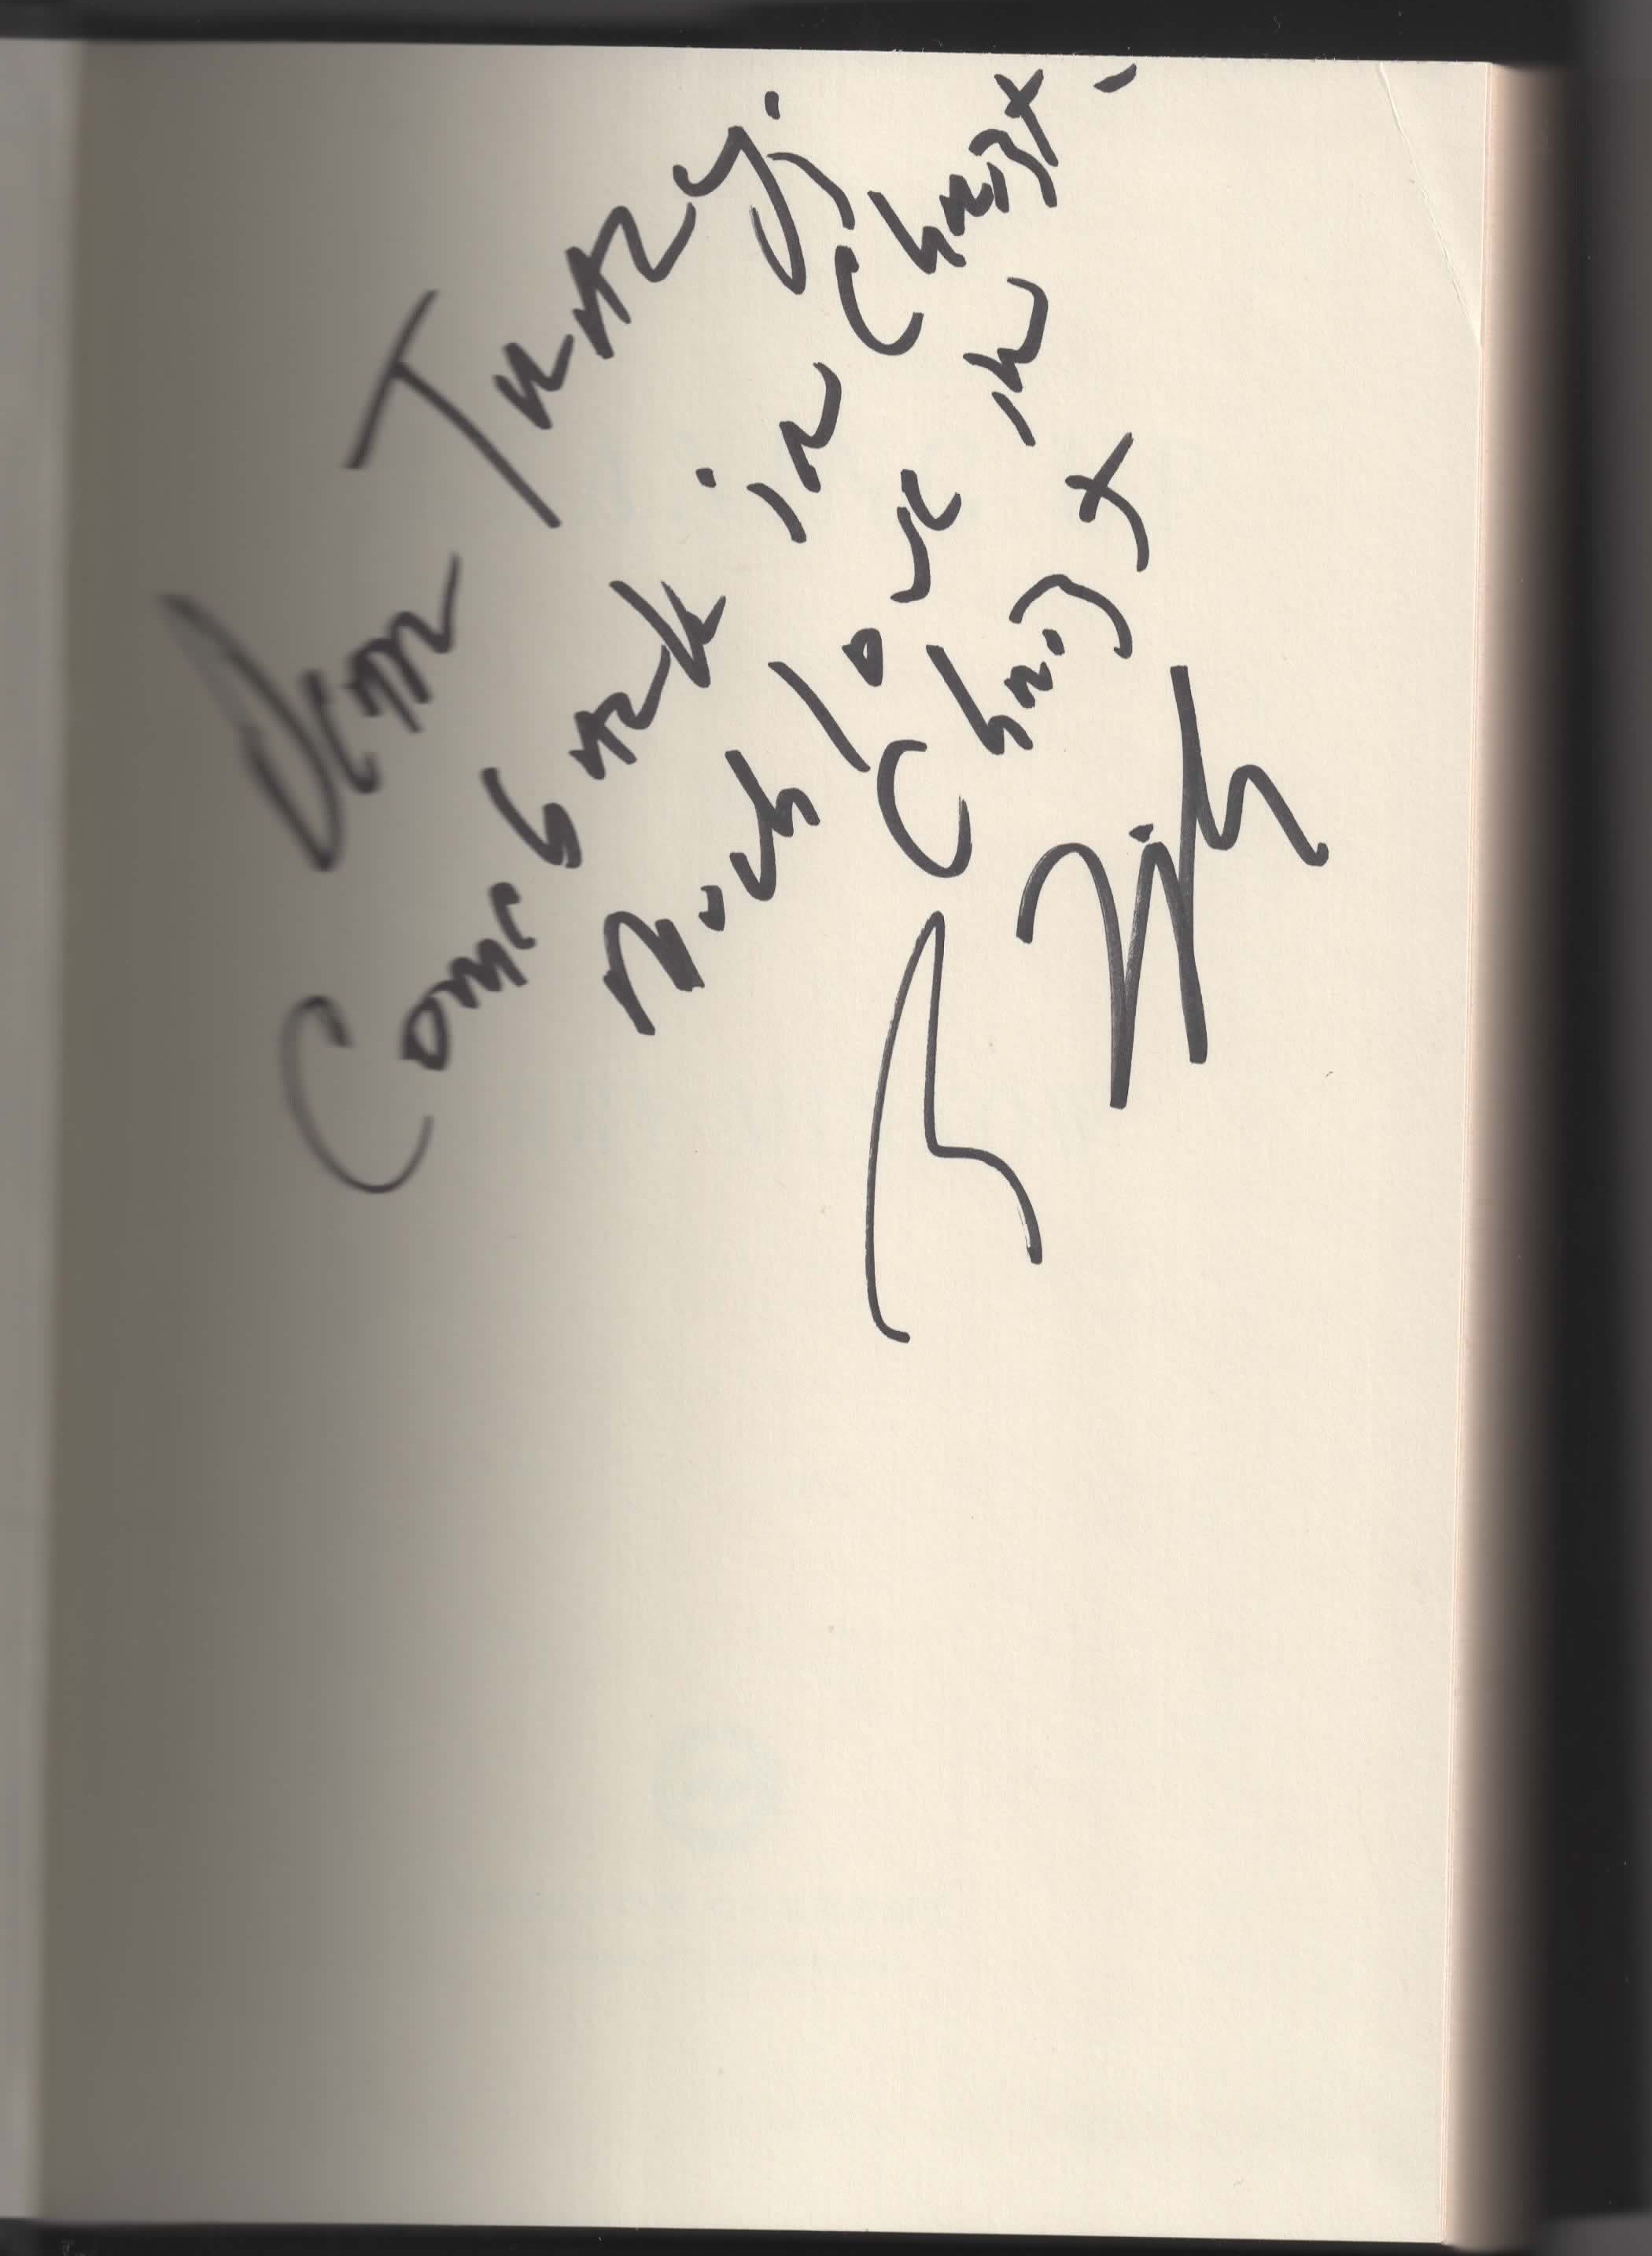 Dear Tracy;
Come back in Christ -
Much love in
Christ